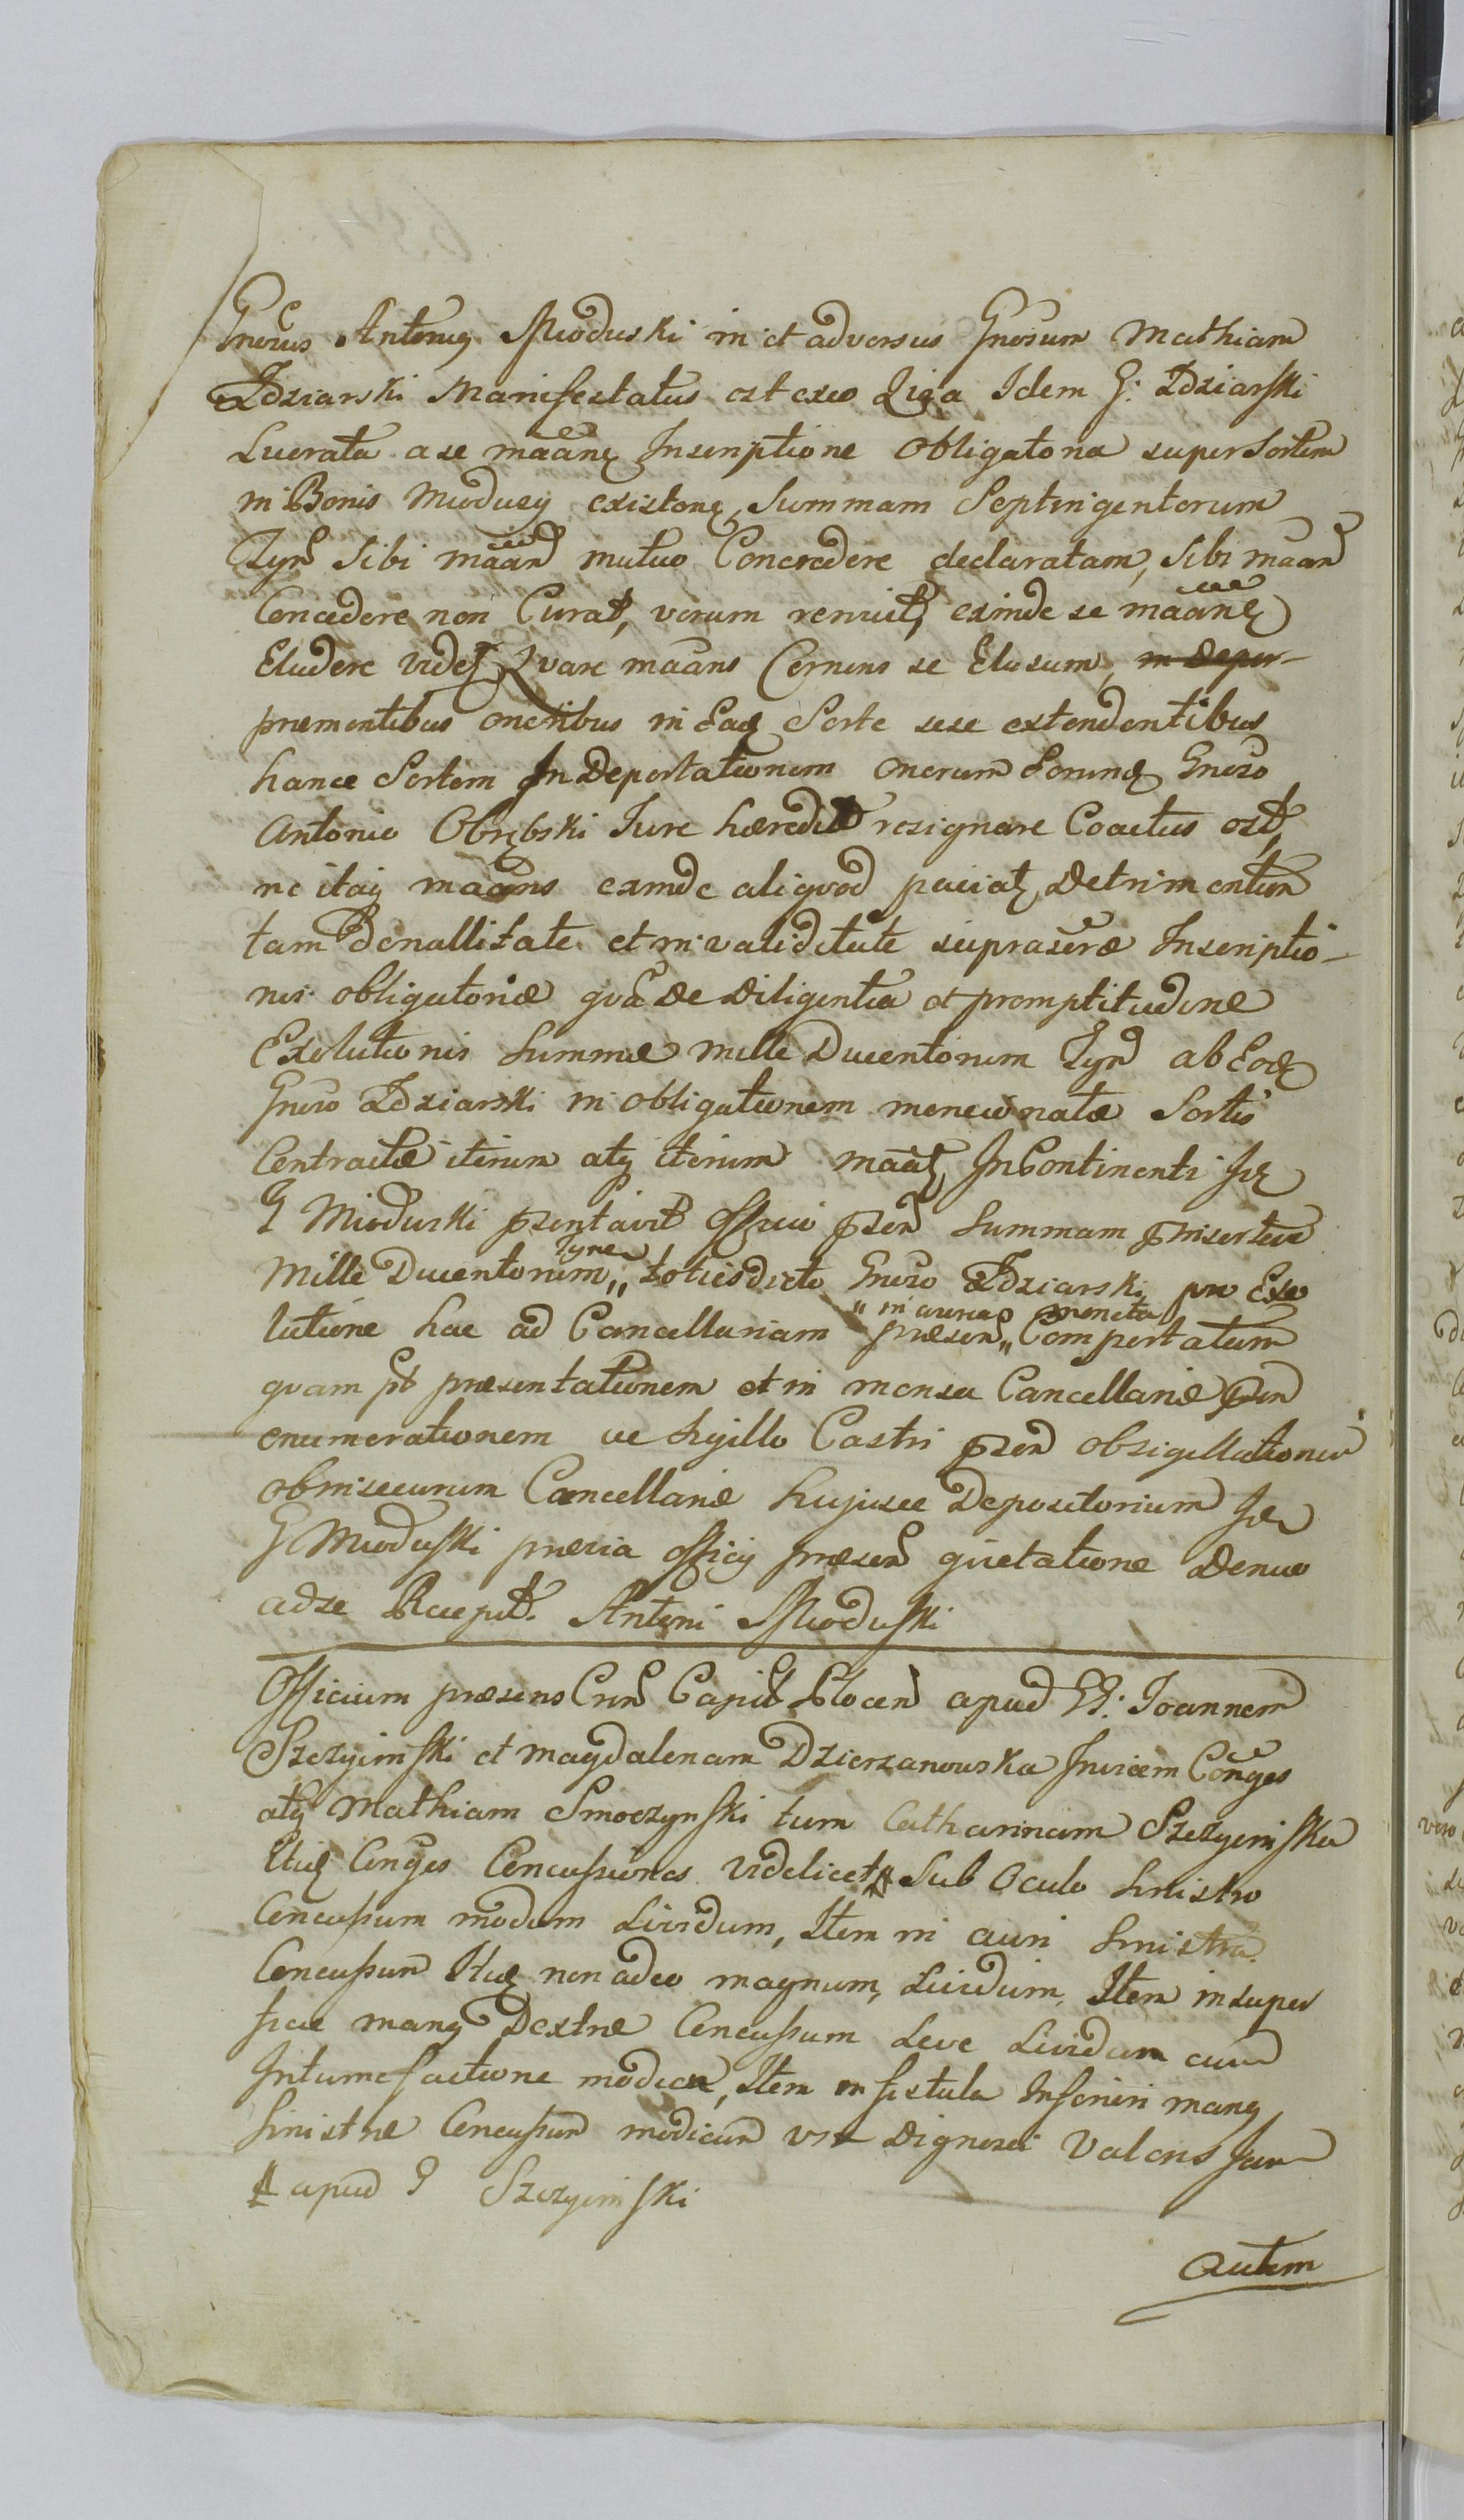 Gnosus Antonius Mioduski in et adversus Gnosum Mathiam
Zdziarski Manifestatus est exeo Quia Idem G: Zdziarski
Lucrata a se maane Inscriptione obligatoria super Sortem
in Bonis Miodusy existen, Summam Septingentorum
Zyn Sibi maan mutuo Concredere declaratam, Sibi maan
Concedere non Curat, verum renuit, exinde se maane
Eludere videt Quare maans Cernens se Elusum, in depor-
prementibus oneribus in Eadem Sorte sese extendentibus
hance Sortem In Deportationem onerum Gnoso
Antonio Obrębski Iure haeredit resignare Coactus est,
ne itaq maans exinde aliquod paciat Detrimentum
tam de nullitate et invaliditate suprascrae Inscriptio-
nis obligatoriae qua de Diligentia et promptitudine
Exolutionis Summae mille Ducentorum Zyn ab Eod
Gnoso Zdziarski in obligationem mencionatae Sortis
Contractae iterum atq iterum maat, In Continenti Id
G Mioduski psentavit officio psen Summam pinsertam
Mille Ducentorum " Zyne toties dicto Gnoso Zdziarski pro Exo
lutione hac ad Cancellariam " in aurea moneta praesen " Comportatam
quam pt praesentationem et in mensa Cancellariae psen
enumerationem ac Sygillo Castri psen obsigillationem
ob insecurum Cancellariae hujusce Depositorium Id
G Mioduski praevia officij praesen quietatione Denuo
ad se Recepit. Antoni Mioduski
Officium praesens Crn Capit Plocen apud G: Joannem
Szczyciński et Magdalenam Dzierzanowska Invicem Conges
atq Mathiam Smoczynski tum Catharinam Szczycinska
Itid Conges Concussiones videlicet # Sub Oculo Sinistro
Concussum modum Lividum, Item in auri Sinistra
Concussum Itid non adeo magnum, Lividum, Item in super
ficie manq Dextrae Concussum Leve Lividum cum
Intumefactione modica, Item in fistula Inferiori manq
Sinistrae Concussum modicum vix Dignosci Valens Jam
# apud G Szczycinski
autem